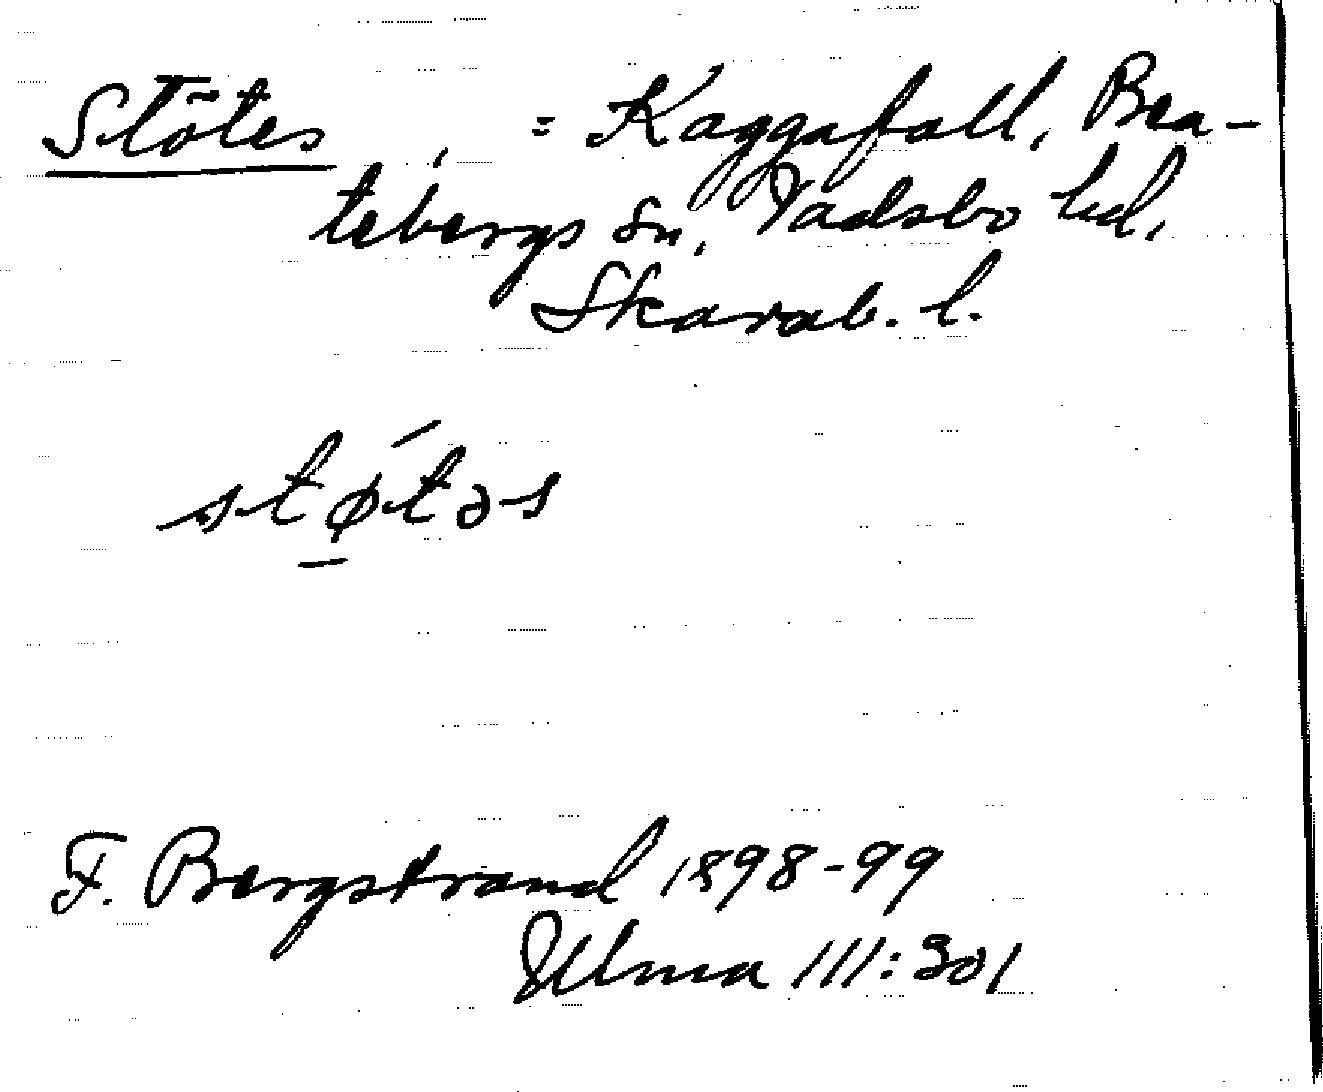 Stötes, = Kaggafall, Bea-
tebergs sn, Vadsbo hd,
Skarab. l.
støtəs
F. Bergstrand 1898-99
Ulma 111:301